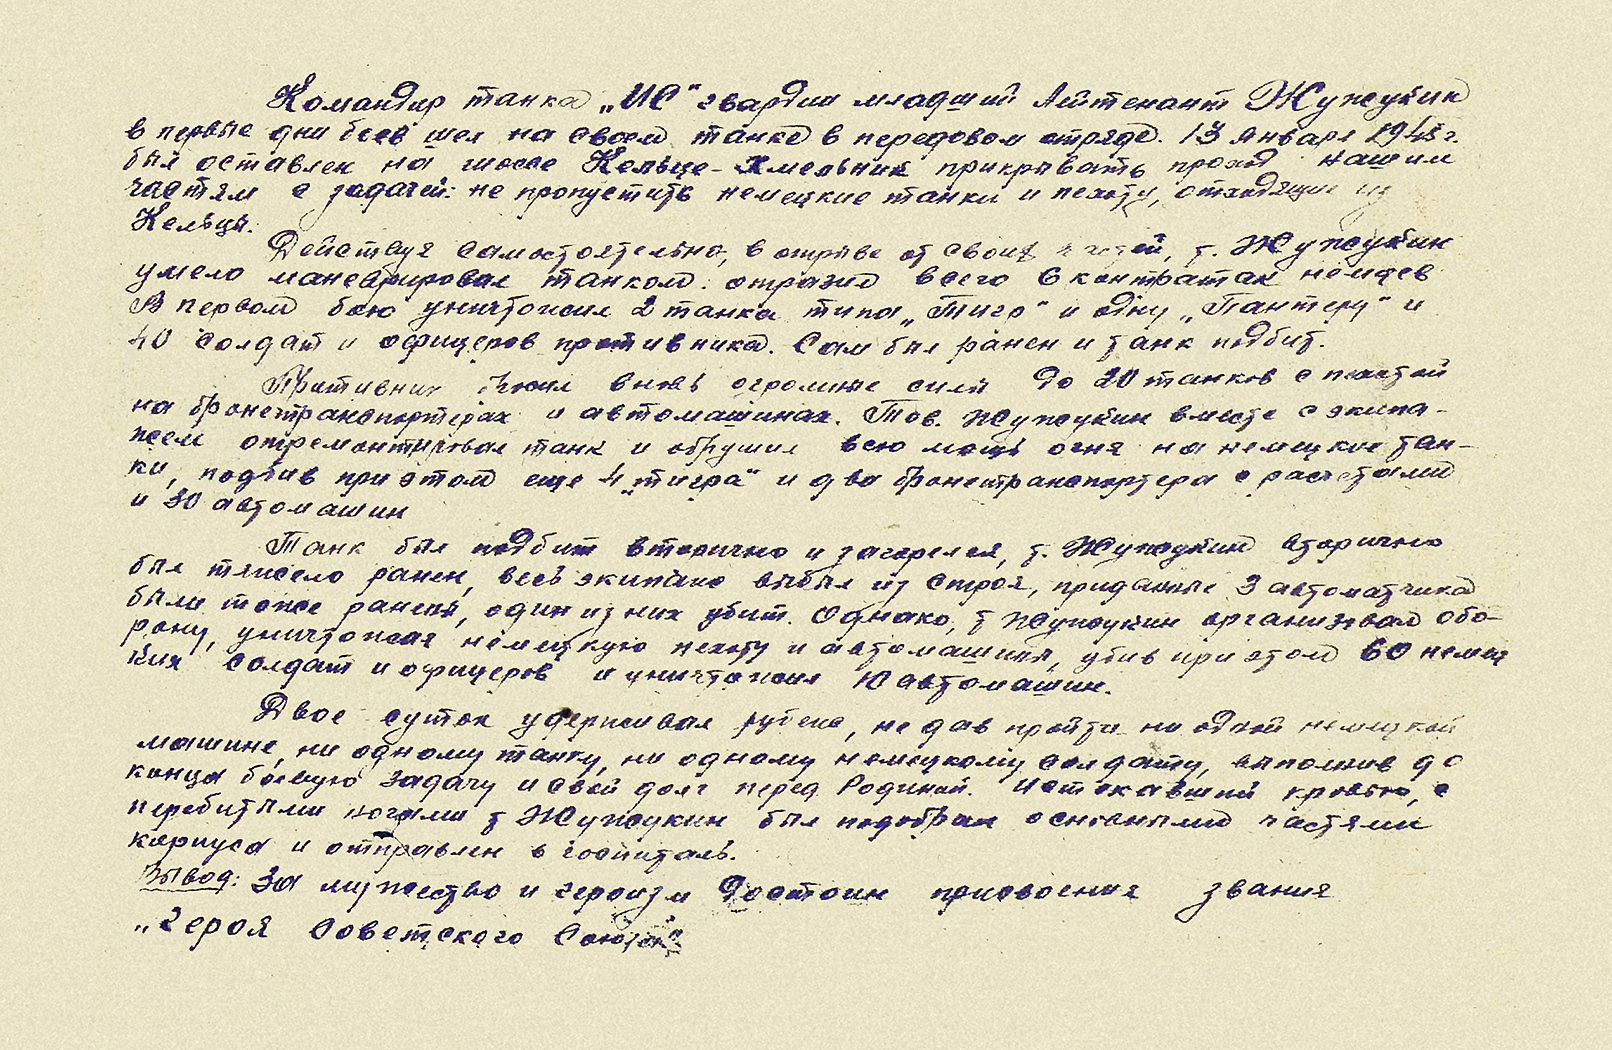 Командир танка „ИС" гвардии младший лейтенант Жужукин
в первые дни боев шел на своем танке в передовом отряде. 13 января 1945 г.
был оставлен на шоссе Кельце-Хмельник прикрывать проход нашим
частям с задачей: не пропустить немецкие танки и пехоту, отходящие из
Кельцы.
Действуя самостоятельно, в отрыве от своих частей, т. Жужукин
умело маневрировал танком: отразил всего 6 контратак немцев
В первом бою уничтожил 2 танка типа „Тигр" и одну „Пантеру" и
40 солдат и офицеров противника. Сам был ранен и танк подбит.
Противник вновь огромные силы до 20 танков с пехотой
на бронетранспортерах и автомашинах. Тов. Жужукин вместе с экипа-
жем отремонтировал танк и обрушил всю мощь огня на немецкие тан-
ки, подбив при этом еще 4 „тигра" и два бронетранспортера с расчетами
и 30 автомашин
Танк был подбит вторично и загорелся, т. Жужукин вторично
был тяжело ранен, весь экипаж выбыл из строя, приданные 3 автоматчика
были тоже ранены, один из них убит. Однако, т Жужукин организовал обо-
рону, уничтожая немецкую пехоту и автомашины, убив при этом 60 немец
ких солдат и офицеров и уничтожил 10 автомашин.
Двое суток удерживал рубеж, не дав пройти ни одной немецкой
машине, ни одному танку, ни одному немецкому солдату, выполнив до
конца боевую задачу и свой долг перед Родиной. Истекавший кровью, с
перебитыми ногами т Жужукин был подобран основными частями
корпуса и отправлен в госпиталь.
Вывод: За мужество и героизм достоин присвоения звания
„Героя Советского Союза"